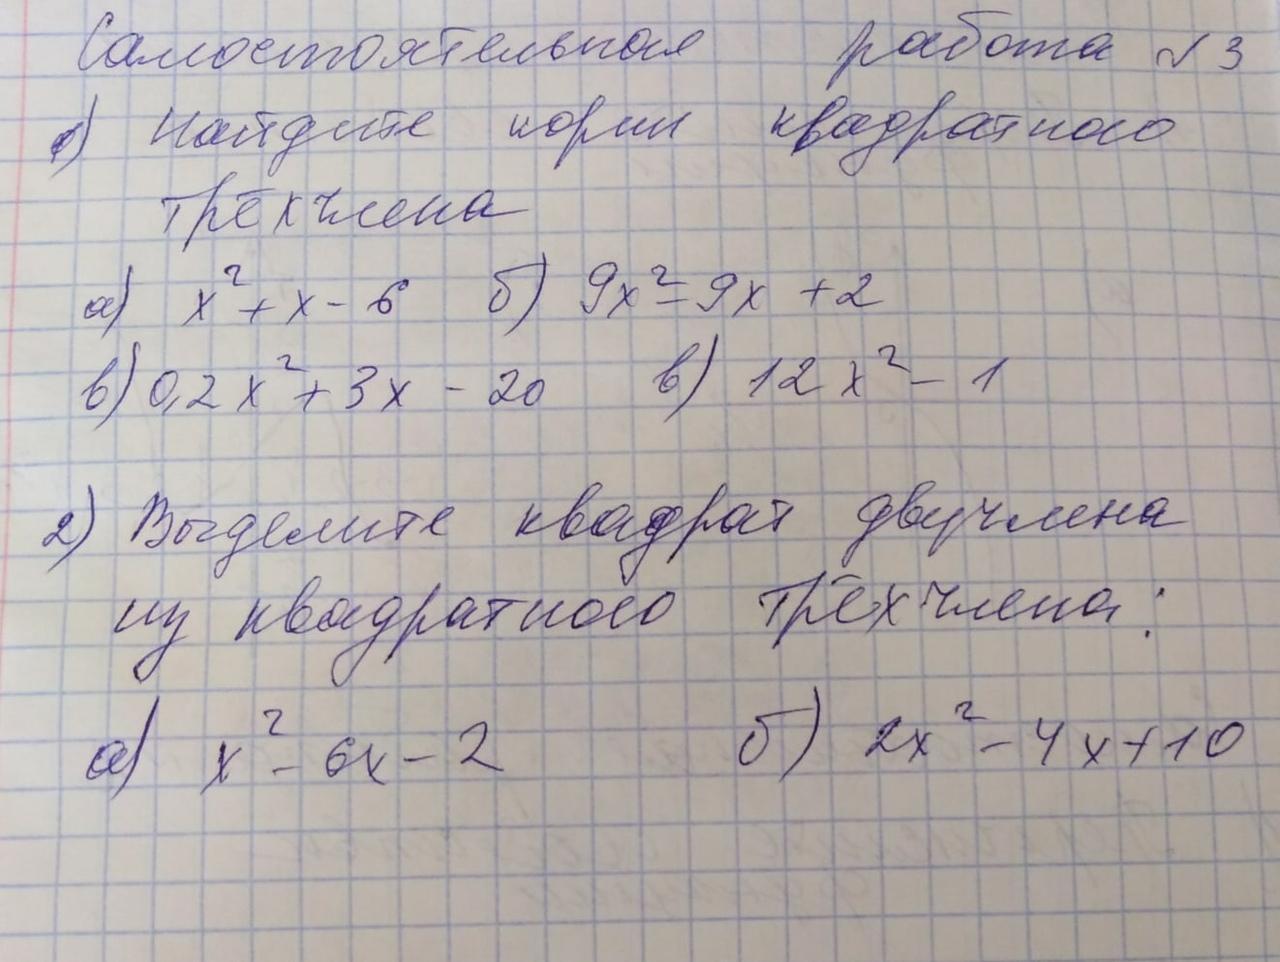 Самостоятельная работа №3
1) Найдите корни квадратного
трёхчлена
а) x² + x - 6 б) 9x² - 9x + 2
в) 0,2x² + 3x - 20 в) 12x² - 1
2) Выделите квадрат двучлена
из квадратного трёхчлена:
а) x² - 6x - 2 б) 2x² - 4x + 10